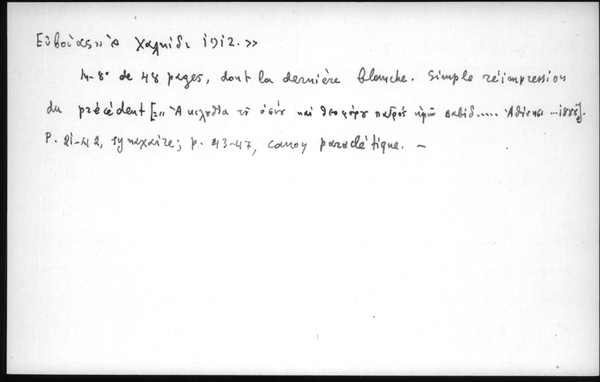 Εὐβοίας» Ἐν Χαλκίδι 1912.»
In-8° de 48 pages, dont la dernière blanche. Simple réimpression
du précédent [=« Ἀκολουθία τοῦ ὁσίου καὶ θεοφόρου πατρὸς ἡμῶν Δαβίδ..... Ἀθῆναι ...
P. 21-42, synaxaire; p. 43-47, canon paraclétique. –